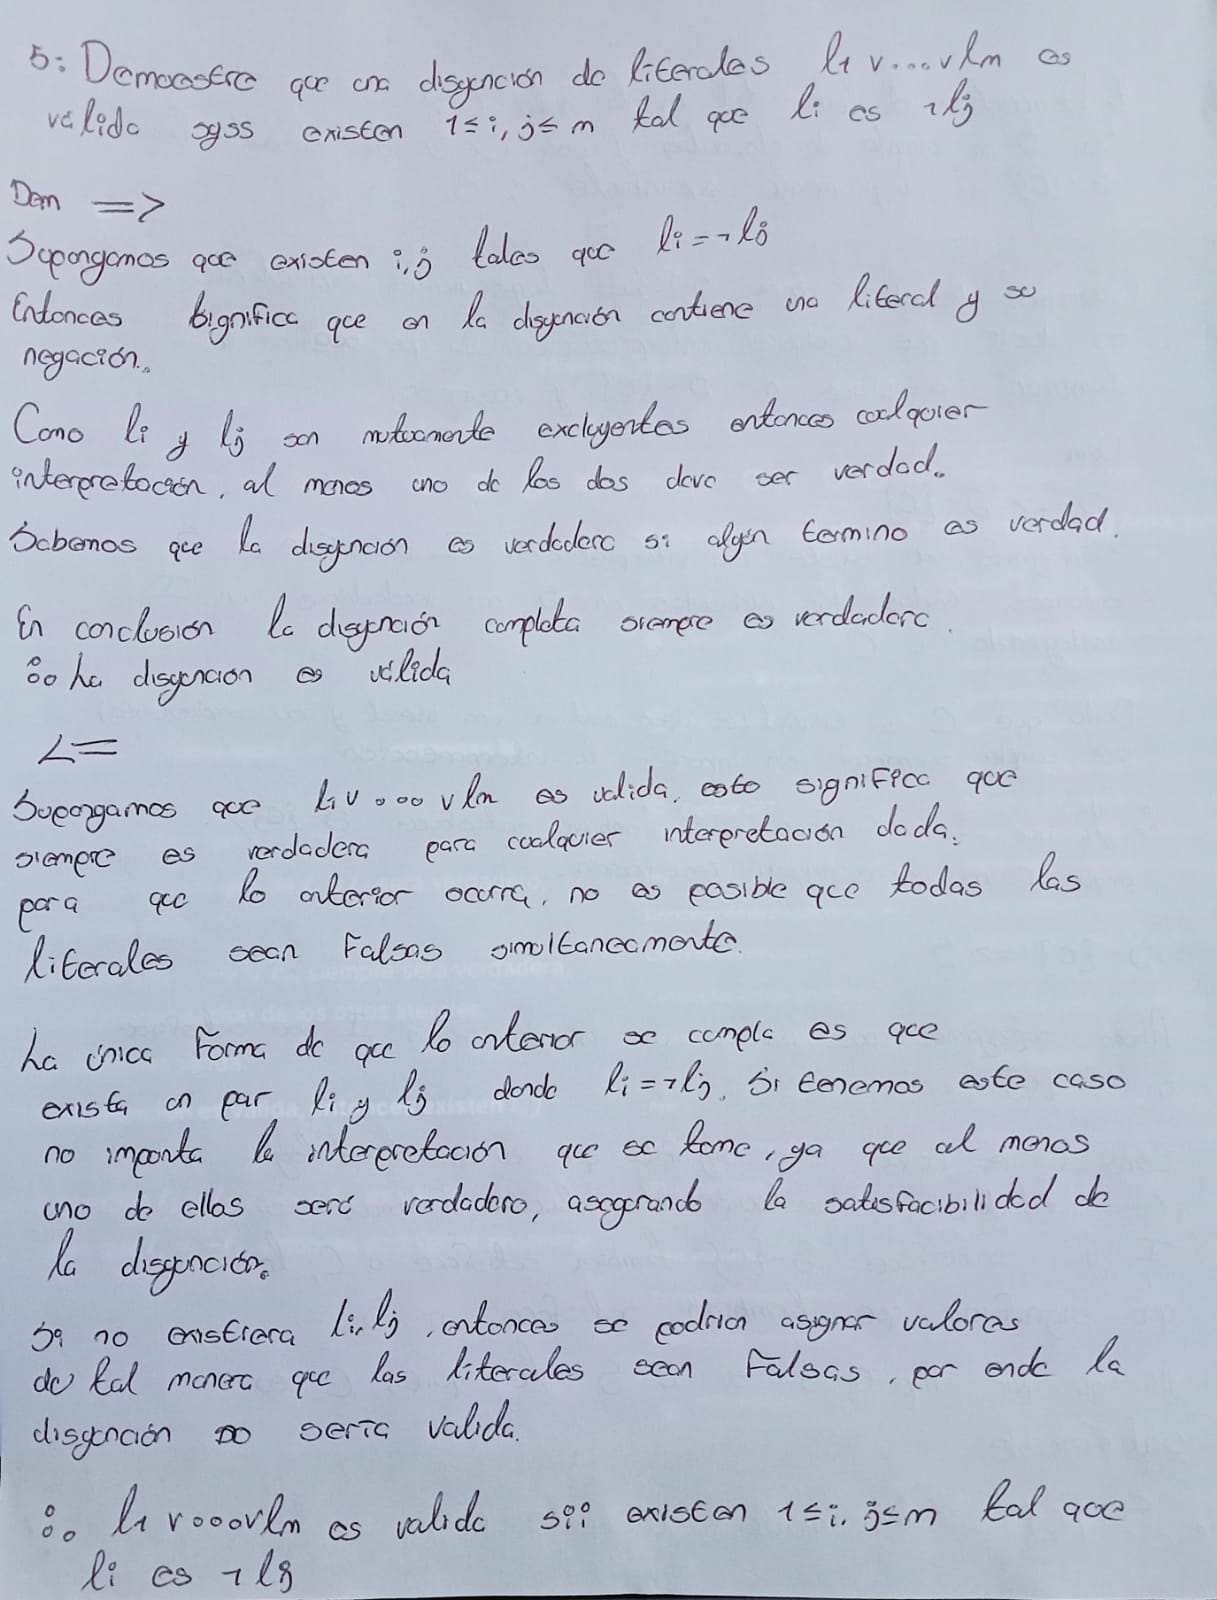 5: Demuestre que una disyunción de literales l1 v...v lm es
válida syss existen 1≤i, j≤m tal que li es ¬lj
Dem =>
Supongamos que existen i,j tales que li=¬lj
Entonces significa que en la disyunción contiene una literal y su
negación.
Como li y lj son mutuamente excluyentes entonces cualquier
interpretación, al menos uno de los dos deve ser verdad.
Sabemos que la disyunción es verdadera si algún termino es verdad.
En conclusión la disyunción completa siempre es verdadera.
∴ La disyuncion es válida
<=
Supongamos que l1 v...v lm es valida, esto significa que
siempre es verdadera para cualquier interpretación dada.
para que lo anterior ocurra, no es posible que todas las
literales sean Falsas simultaneamente.
La única Forma de que lo anterior se cumpla es que
exista un par li y lj donde li=¬lj. Si tenemos este caso
no importa la interpretación que se tome, ya que al menos
uno de ellas será verdadero, asegurando la satisfacibilidad de
la disyunción.
Si no existiera li, lj, entonces se podrian asignar valores
de tal manera que las literales sean Falsas, por ende la
disyunción no sería valida.
∴ l1 v...v lm es valida sii existen 1≤i, j≤m tal que
li es ¬lj